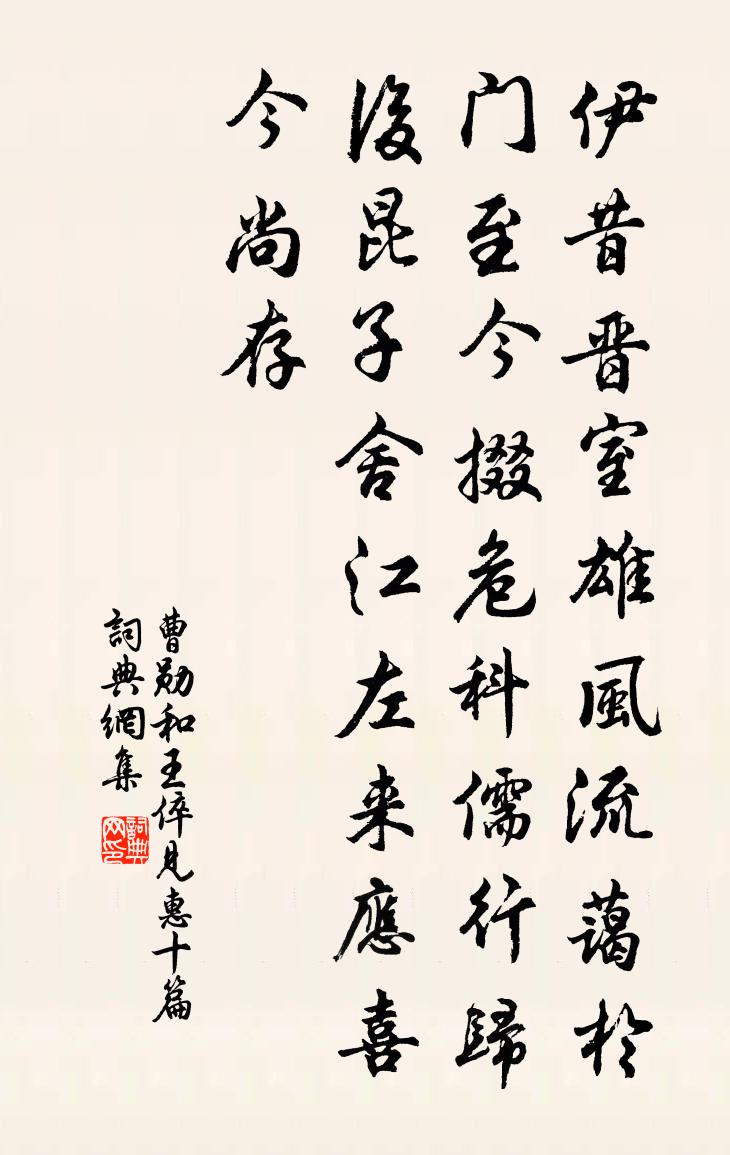 伊昔晋室雄風流藹於
门至今掇危科儒行歸
後昆子舍江左来應喜
今尚存
曹勋和王倅見惠十篇
詞典網集
詞典网印